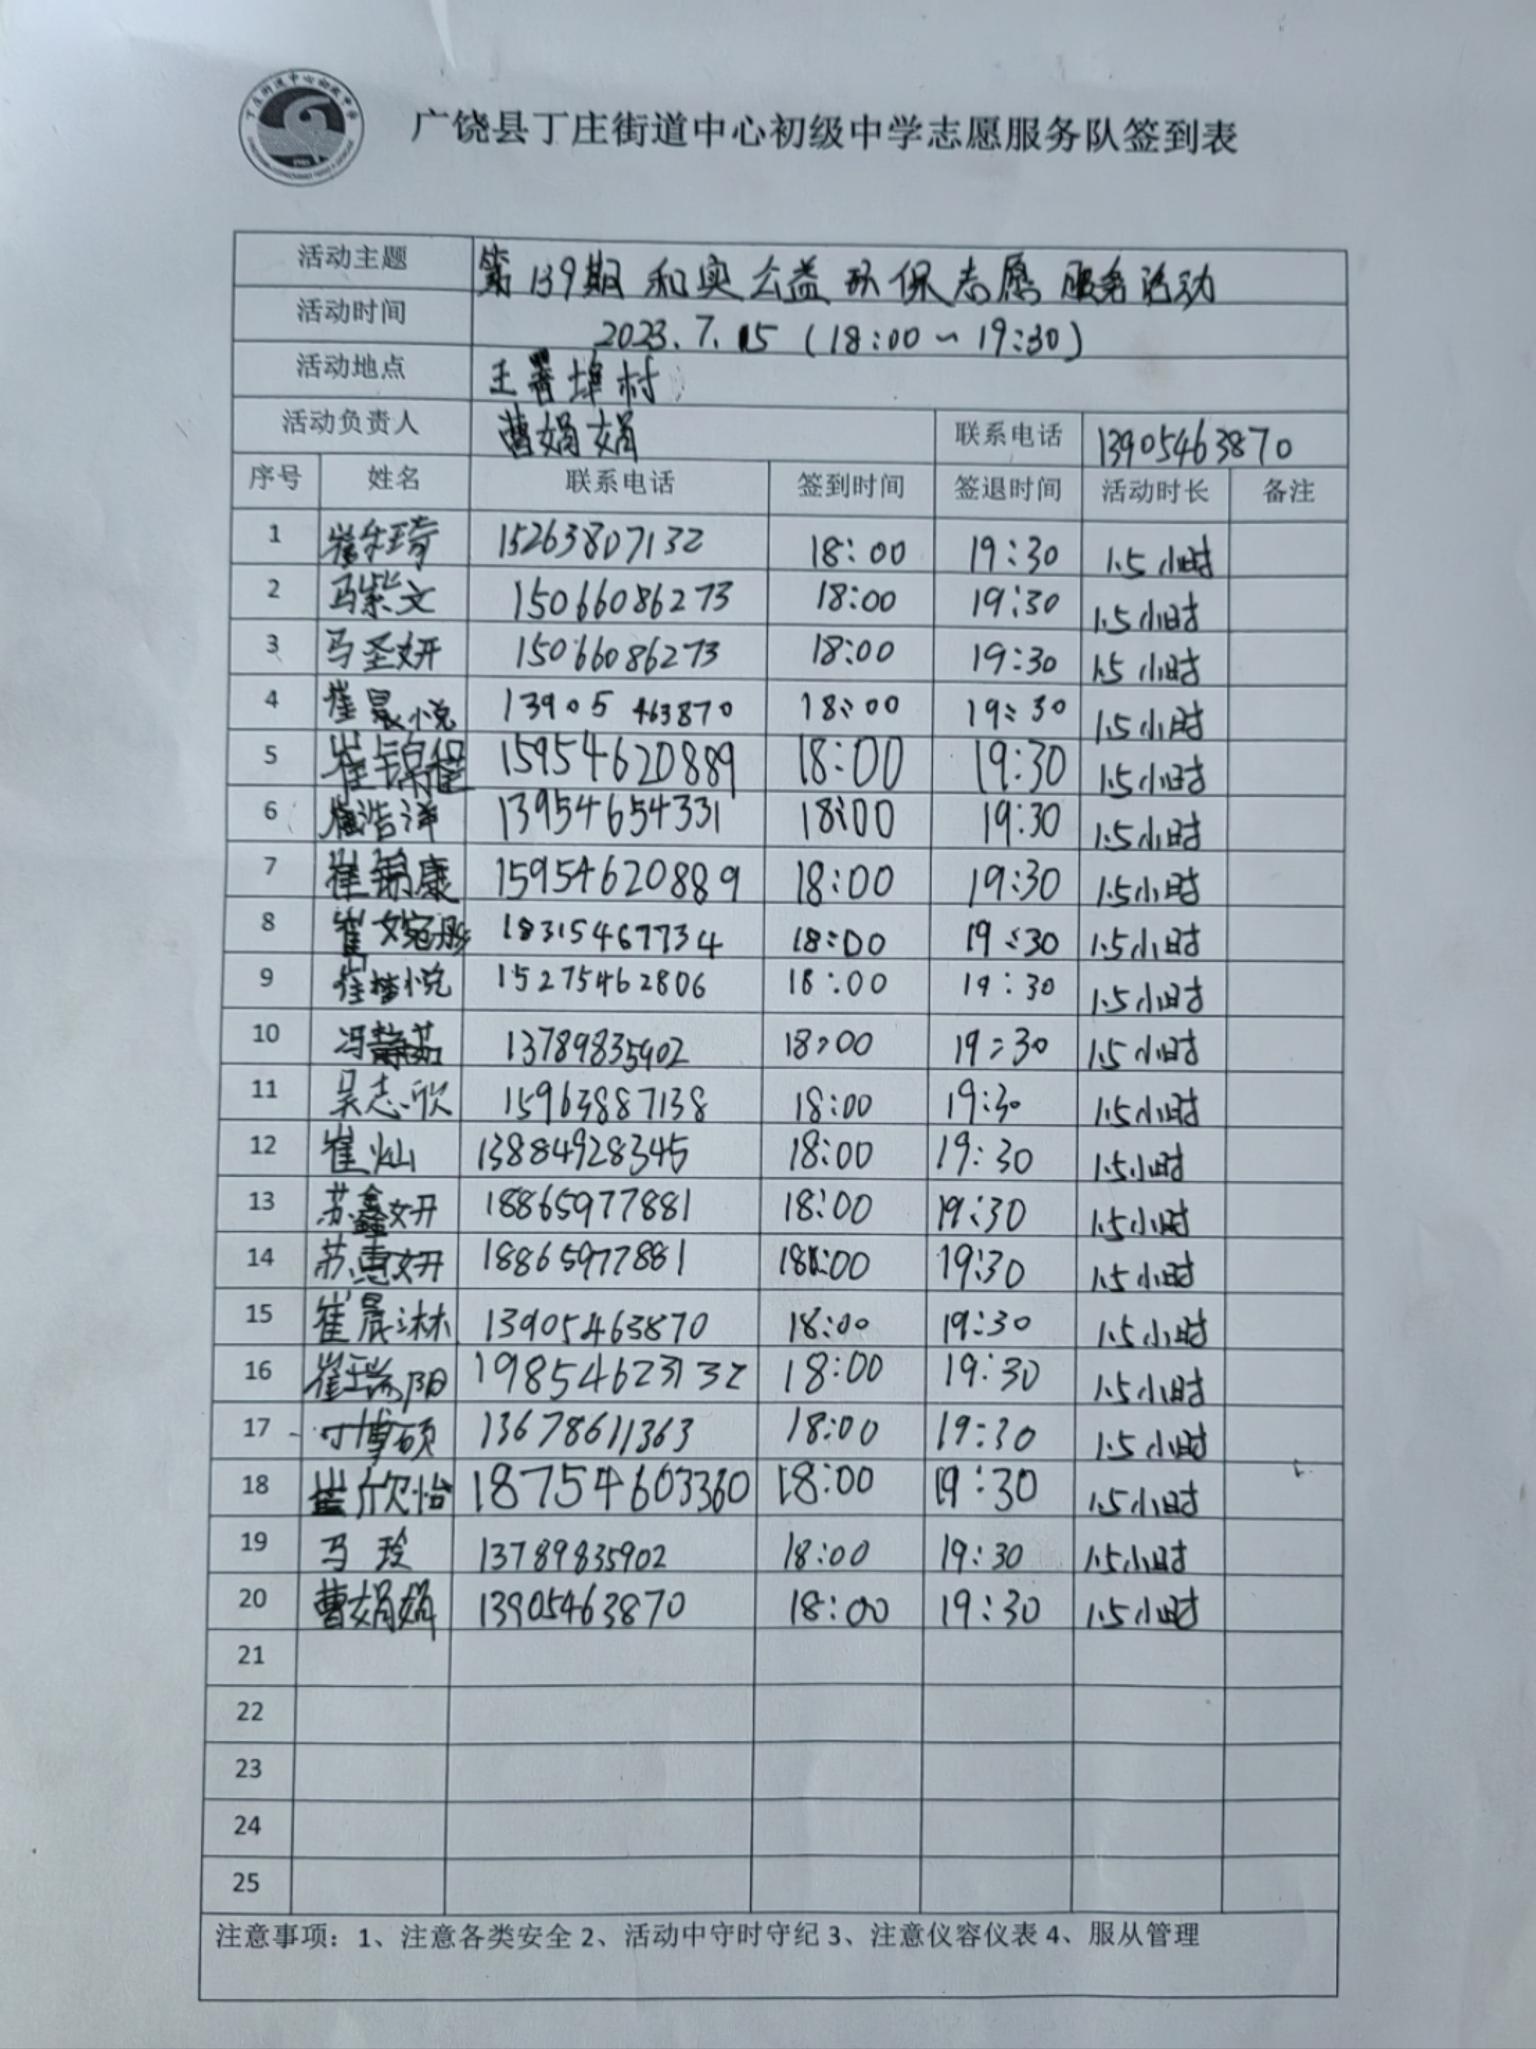 广饶县丁庄街道中心初级中学志愿服务队签到表
活动主题 第139期和实公益环保志愿服务活动
活动时间 2023.7.15(18:00~19:30)
活动地点 王署埠村
活动负责人 曹娟娟 联系电话 13905463870
序号 姓名 联系电话 签到时间 签退时间 活动时长 备注
1 15263807132 18:00 19:30 1.5小时
2 马紫文 15066086273 18:00 19:30 1.5小时
3 马圣妍 15066086273 18:00 19:30 1.5小时
4 崔晨悦 13905463870 18:00 19:30 1.5小时
5 崔锦程 15954620889 18:00 19:30 1.5小时
6 崔浩洋 13954654331 18:00 19:30 1.5小时
7 崔锦康 15954620889 18:00 19:30 1.5小时
8 崔婉彤 18315467734 18:00 19:30 1.5小时
9 崔楷悦 15275462806 18:00 19:30 1.5小时
10 冯静茹 13789835902 18:00 19:30 1.5小时
11 吴志欣 15963887138 18:00 19:30 1.5小时
12 崔灿 13884928345 18:00 19:30 1.5小时
13 苏鑫妍 18865977881 18:00 19:30 1.5小时
14 苏惠妍 18865977881 18:00 19:30 1.5小时
15 崔晨淋 13905463870 18:00 19:30 1.5小时
16 崔瑞阳 19854623132 18:00 19:30 1.5小时
17 博硕 13678611363 18:00 19:30 1.5小时
18 崔欣怡 18754603360 18:00 19:30 1.5小时
19 马玲 13789835902 18:00 19:30 1.5小时
20 曹娟娟 13905463870 18:00 19:30 1.5小时
21
22
23
24
25
注意事项：1、注意各类安全 2、活动中守时守纪 3、注意仪容仪表 4、服从管理